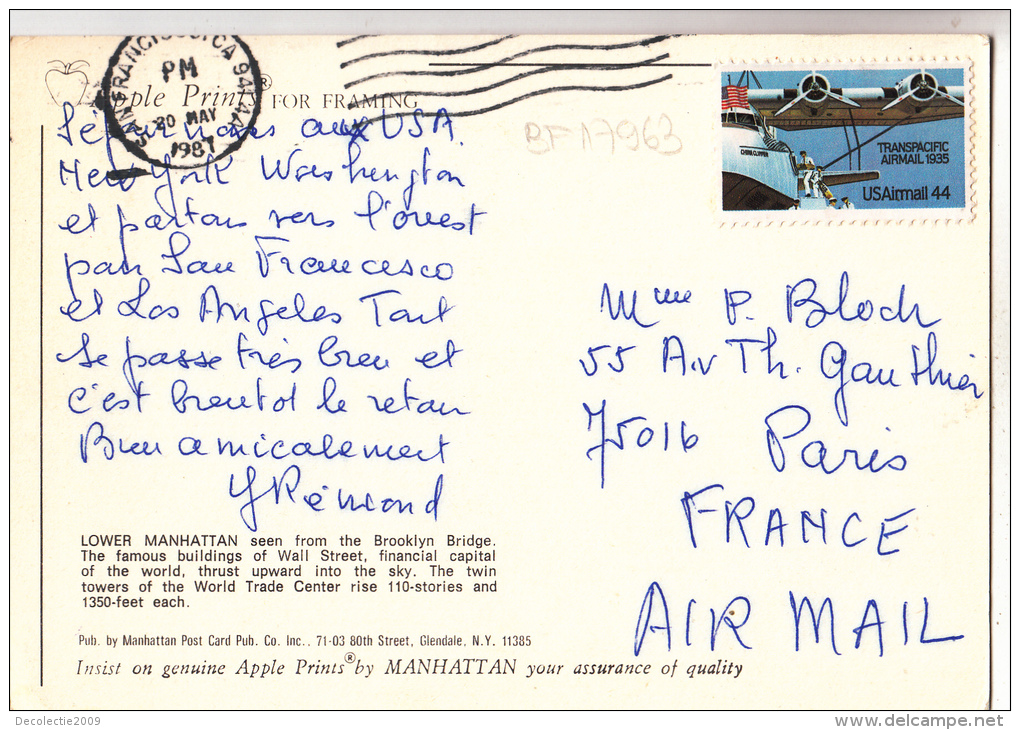 SAN FRANCISCO, CA 941
PM
20 MAY
1987
Apple Prints® FOR FRAMING
BF 17963
CHINA CLIPPER
TRANSPACIFIC
AIRMAIL 1935
USAirmail 44
Séjournons aux USA
New York Washington
et partons vers l'ouest
par San Francesco
et Los Angeles Tout
se passe très bien et
c'est bientot le retour
Bien amicalement
Y Rémond
Mme P. Bloch
55 Av Th. Gauthier
75016 Paris
FRANCE
AIR MAIL
LOWER MANHATTAN seen from the Brooklyn Bridge.
The famous buildings of Wall Street, financial capital
of the world, thrust upward into the sky. The twin
towers of the World Trade Center rise 110-stories and
1350-feet each.
Pub. by Manhattan Post Card Pub. Co. Inc., 71-03 80th Street, Glendale, N.Y. 11385
Insist on genuine Apple Prints® by MANHATTAN your assurance of quality
Decolectie2009
www.delcampe.net